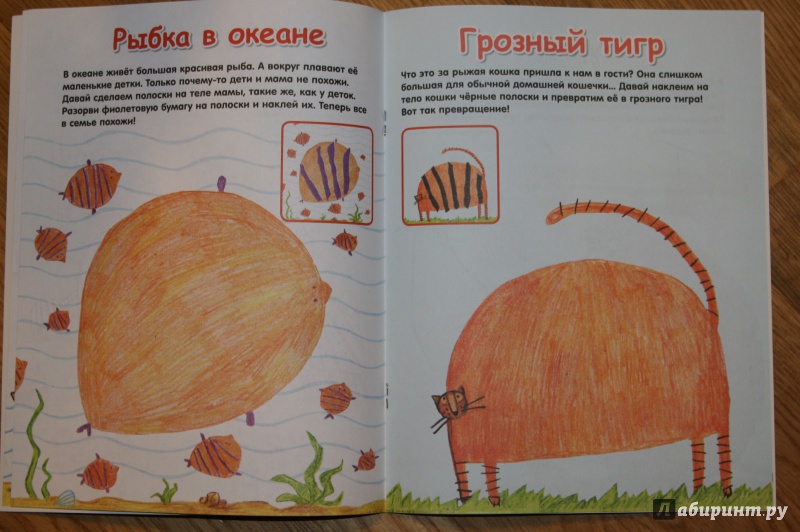 Рыбка в океане
В океане живёт большая красивая рыба. А вокруг плавают её
маленькие детки. Только почему-то дети и мама не похожи.
Давай сделаем полоски на теле мамы, такие же, как у деток.
Разорви фиолетовую бумагу на полоски и наклей их. Теперь все
в семье похожи!
Грозный тигр
Что это за рыжая кошка пришла к нам в гости? Она слишком
большая для обычной домашней кошечки... Давай наклеим на
тело кошки чёрные полоски и превратим её в грозного тигра!
Вот так превращение!
Лабиринт.ру